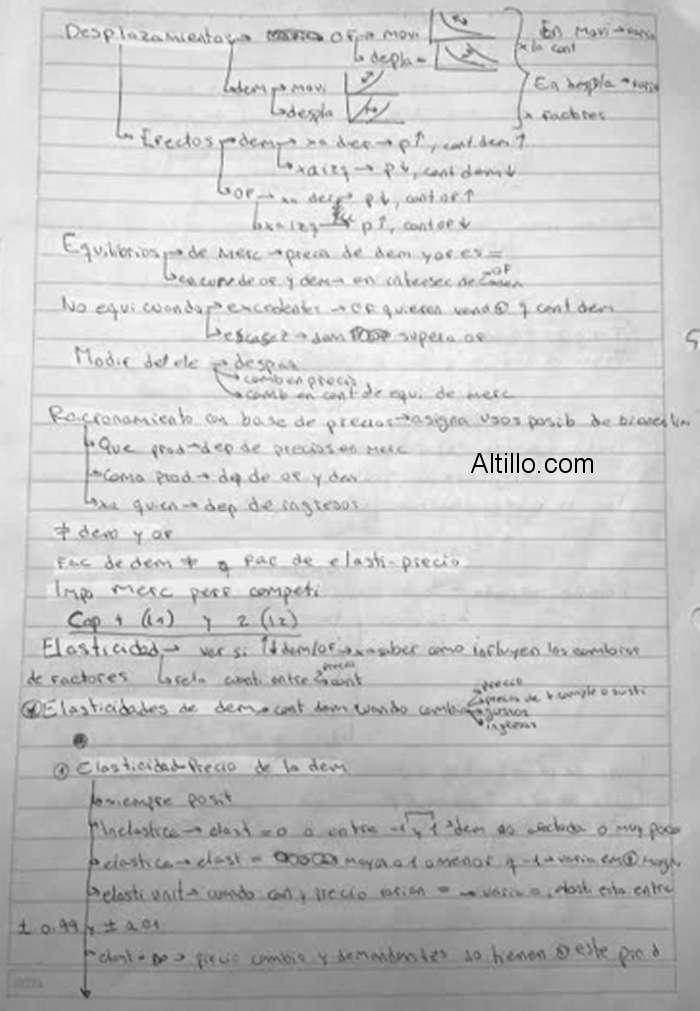 Desplazamientos → OF → movi
depla =
En Movi → varia x la cant
dem → movi
despla
En despla → varia x factores
Efectos → dem → xa der → p↑, cant dem ↑
xa izq → p↓, cant dem ↓
OF → xa der → p↓, cant of ↑
xa izq → p↑, cant of ↓
Equilibrios → de Merc → precio de dem y of es =
en curva de of y dem → en intersec de
No equi cuando → excedentes → OF quieren vend ⊕ q cont dem
escasez → dem supera of
Modif del ele → despla
camb en precio
camb en cant de equi de merc
Racionamiento con base de precios → asigna usos posib de bienes
Que prod → dep de precios en Merc
Como prod → dep de of y dem
xa quien → dep de ingresos
≠ dem y of
Fac de dem ≠ q Fac de elasti-precio
Impo Merc perf competi
Cap 4 (11) y 2 (12)
Elasticidad → ver si ↑↓ dem/of → xa saber como influyen los cambios
de factores rela cuanti entre precio cant
Elasticidades de dem → cant dem cuando cambia
precio
precio de b comple o susti
gustos
ingresos
① Elasticidad-Precio de la dem
siempre posit
Inelastica → elast = 0 o entre -1 y 1 → dem no afectada o muy poco
elastica → elast = mayor a 1 o menor q -1 → varia en
elasti unit → cuando cant y precio varian = → elasti esta entre
± 0.99 y ± 1.01
elast = ∞ → precio cambia y demandantes no tienen este prod
Altillo.com